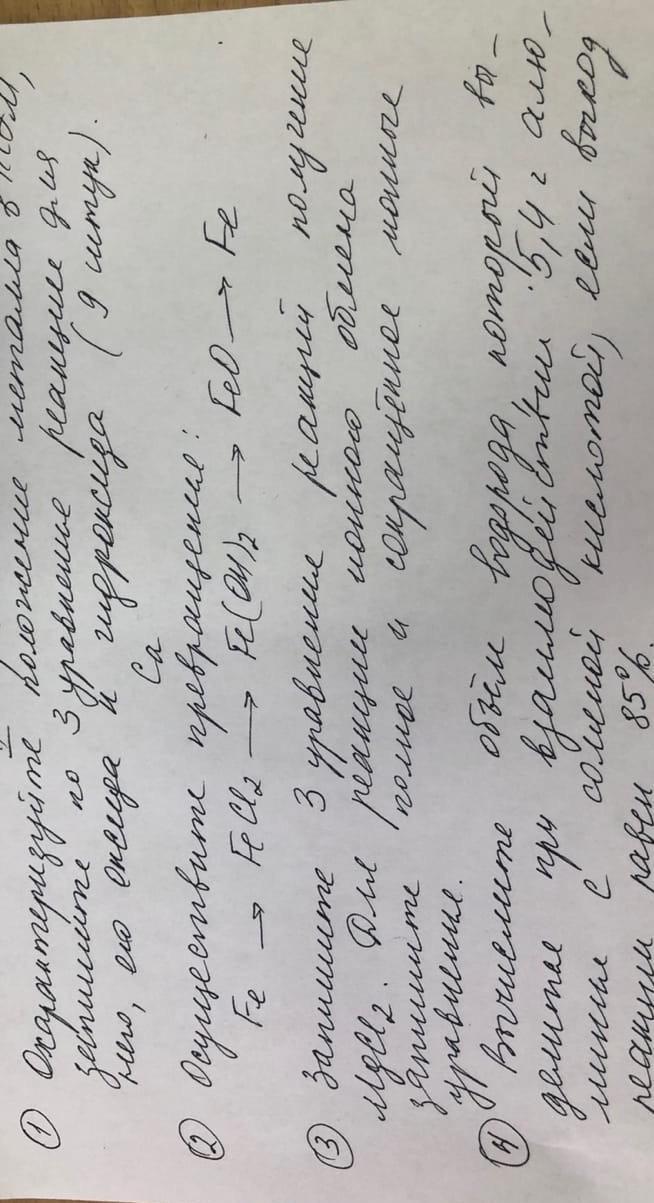 ① Охарактеризуйте положение металла в ПСХЭ,
запишите по 3 уравнение реакции для
него, его оксида и гидроксида (9 штук).
Ca
② Осуществите превращение:
Fe → FeCl₂ → Fe(OH)₂ → FeO → Fe
③ Запишите 3 уравнения реакций получение
MgCl₂. Для реакции ионного обмена
запишите полное и сокращённое ионные
уравнение.
④ Вычислите объём водорода, который вы-
делится при взаимодействии 5,4 г алю-
миния с соляной кислотой, если выход
реакции равен 85%.